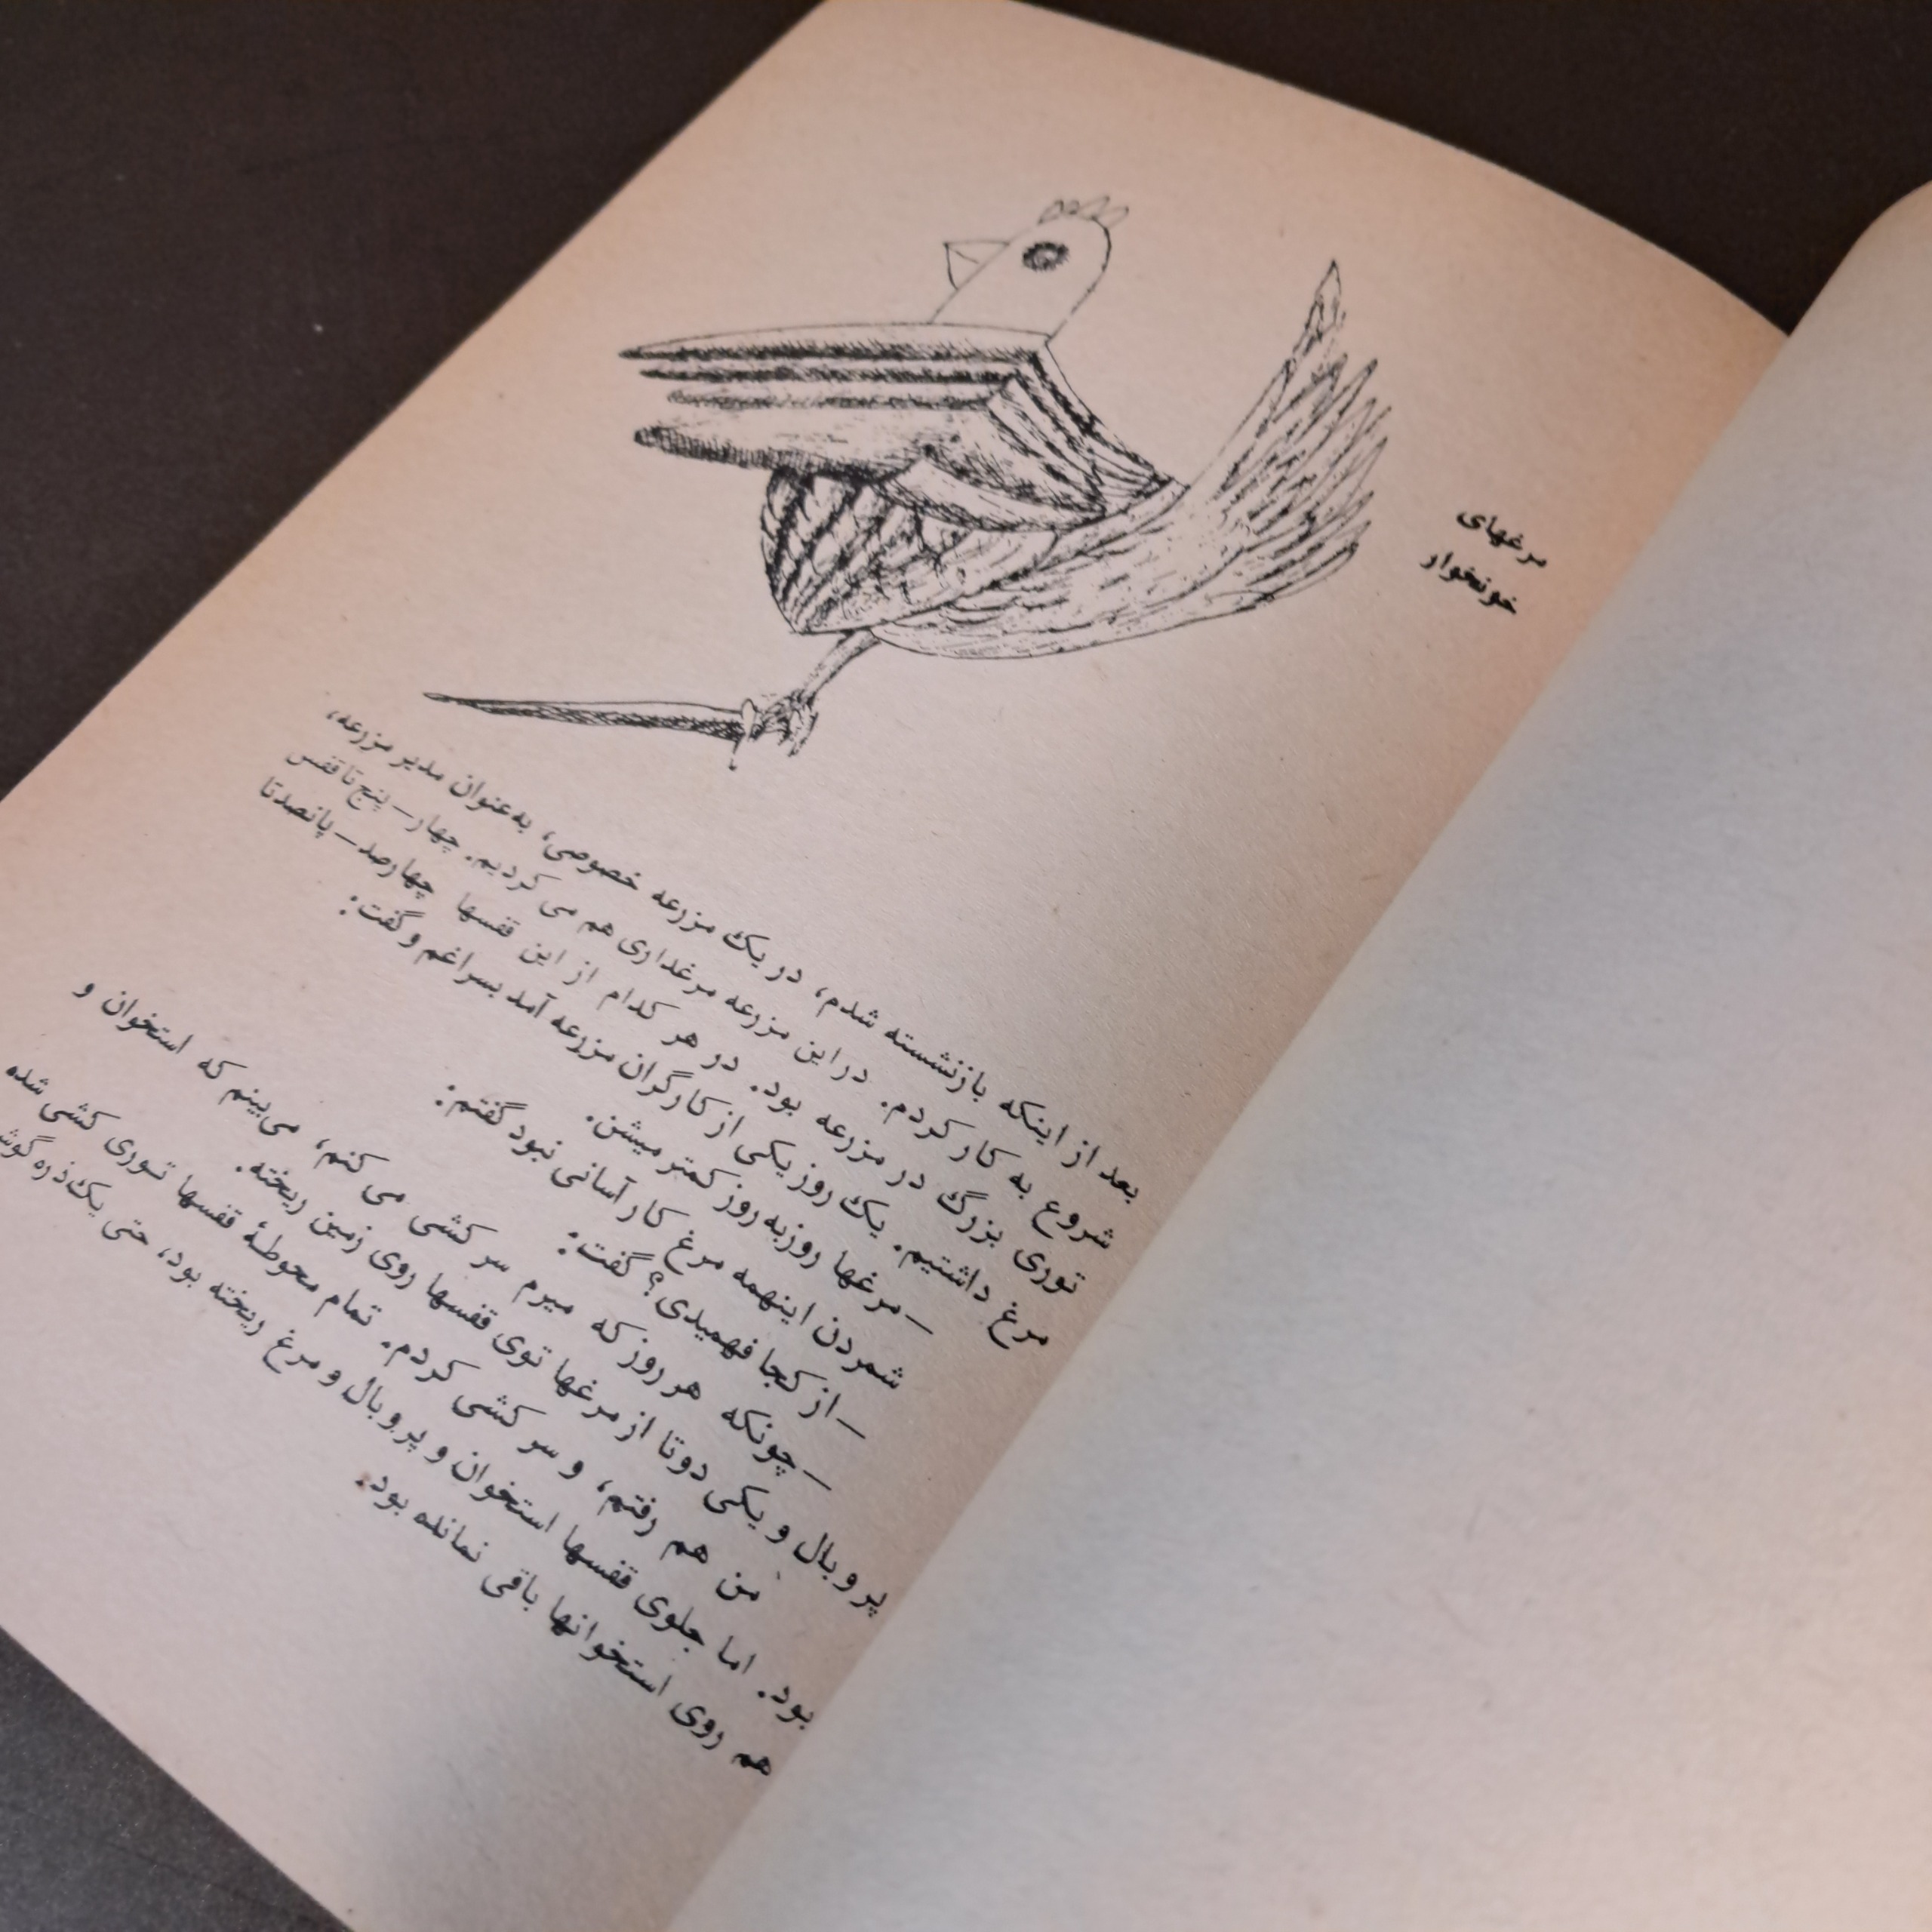 مرغهای
خونخوار
بعد از اینکه بازنشسته شدم، در یک مزرعه خصوصی، به‌عنوان مدیر مزرعه،
شروع به کار کردم. در این مزرعه مرغداری هم می کردیم. چهار – پنج تا قفس
توری بزرگ در مزرعه بود. در هر کدام از این قفسها چهارصد – پانصدتا
مرغ داشتیم. یک روز یکی از کارگران مزرعه آمد بسراغم و گفت:
– مرغها روزبه روز کمتر میشن.
شمردن اینهمه مرغ کار آسانی نبود گفتم:
– از کجا فهمیدی؟ گفت:
– چونکه هر روز که میرم سر کشی می کنم، می‌بینم که استخوان و
پر و بال و یکی دوتا از مرغها توی قفسها روی زمین ریخته.
من هم رفتم، و سر کشی کردم. تمام محوطهٔ قفسها توری کشی شده
بود. اما جلوی قفسها استخوان و پر و بال و مرغ ریخته بود، حتی یک ذره
هم روی استخوانها باقی نمانده بود.